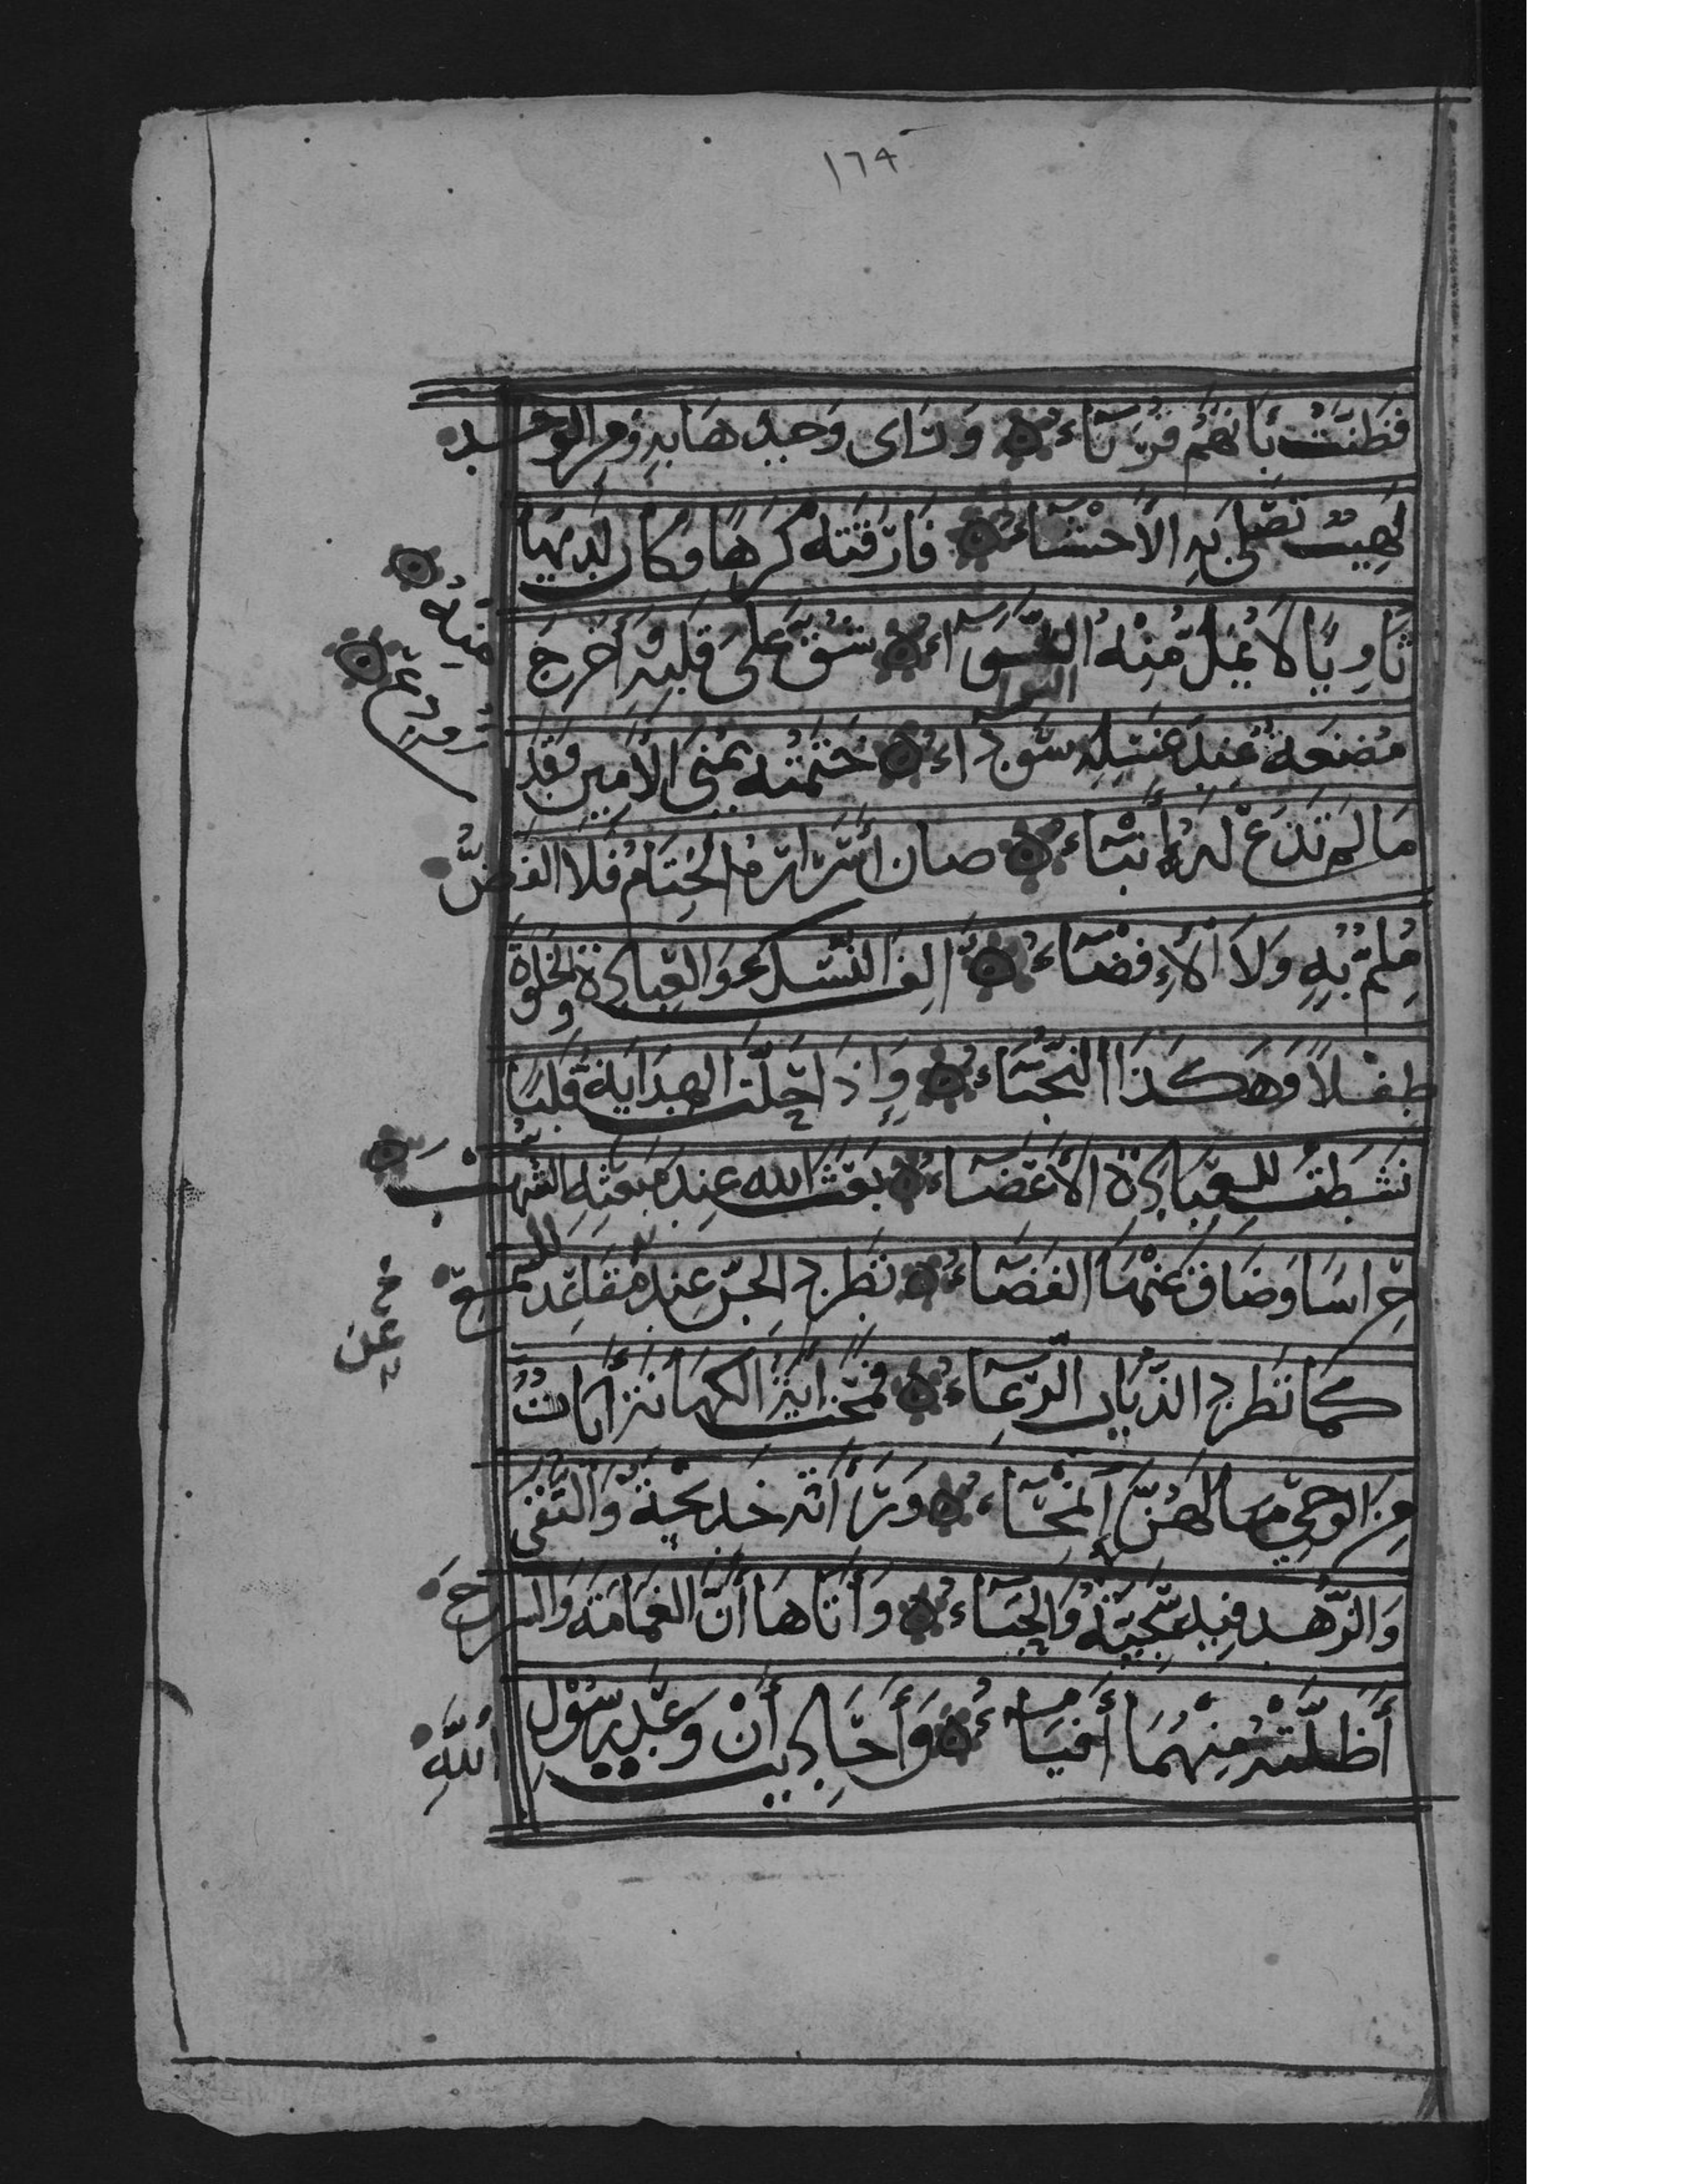 ١٦٩
فَظَنَّتْ بِأَنَّهُمْ قُرَنَاءُ وَرَأَى وَجْدَهَا بِهِ وَمِنَ الْوَجْدِ
لَهِيبٌ تَصْلَى بِهِ الْأَحْشَاءُ فَارَقَتْهُ كَرْهًا وَكَانَ لَدَيْهَا
ثَاوِيًا لَا يُمَلُّ مِنْهُ الثَّوَاءُ شُقَّ عَلَى قَلْبِهِ وَأُخْرِجَ
الثوا
مِنْهُ
مُضْغَةٌ عِنْدَ غَسْلِهِ سَوْدَاءُ خَتَمَتْهُ يُمْنَى الْأَمِينِ وَقَدْ
أُودِعَ
مَا لَمْ تُذَعْ لَهُ أَنْبَاءُ صَانَ أَسْرَارَهُ الْخِتَامُ فَلَا الْفَضُّ
مُلِمٌّ بِهِ وَلَا الْإِفْضَاءُ أَلِفَ النُّسْكَ وَالْعِبَادَةَ وَالْخَلْوَةَ
طِفْلًا وَهَكَذَا النُّجَبَاءُ وَإِذَا حَلَّتِ الْهِدَايَةُ قَلْبًا
نَشِطَتْ لِلْعِبَادَةِ الْأَعْضَاءُ بَعَثَ اللهُ عِنْدَ مَبْعَثِهِ الشُّهْبَ
حِرَاسًا وَضَاقَ عَنْهَا الْفَضَاءُ تَطْرُدُ الْجِنَّ عِنْدَ مَقَاعِدَ لِلسَّمْعِ
خ عن
كَمَا تَطْرُدُ الذِّيَابَ الرِّعَاءُ فَمَحَتْ آيَةَ الْكَهَانَةِ آيَاتٌ
مِنَ الْوَحْيِ مَا لَهُنَّ انْمِحَاءُ وَرَأَتْهُ خَدِيجَةٌ وَالتُّقَى
وَالزُّهْدُ فِيهِ سَجِيَّةٌ وَالْحَيَاءُ وَأَتَاهَا أَنَّ الْغَمَامَةَ وَالسَّرْحَ
أَظَلَّتْهُ مِنْهُمَا أَفْيَاءُ وَأَحَادِيثُ أَنْ وَعْدَ رَسُولِ
اللهِ